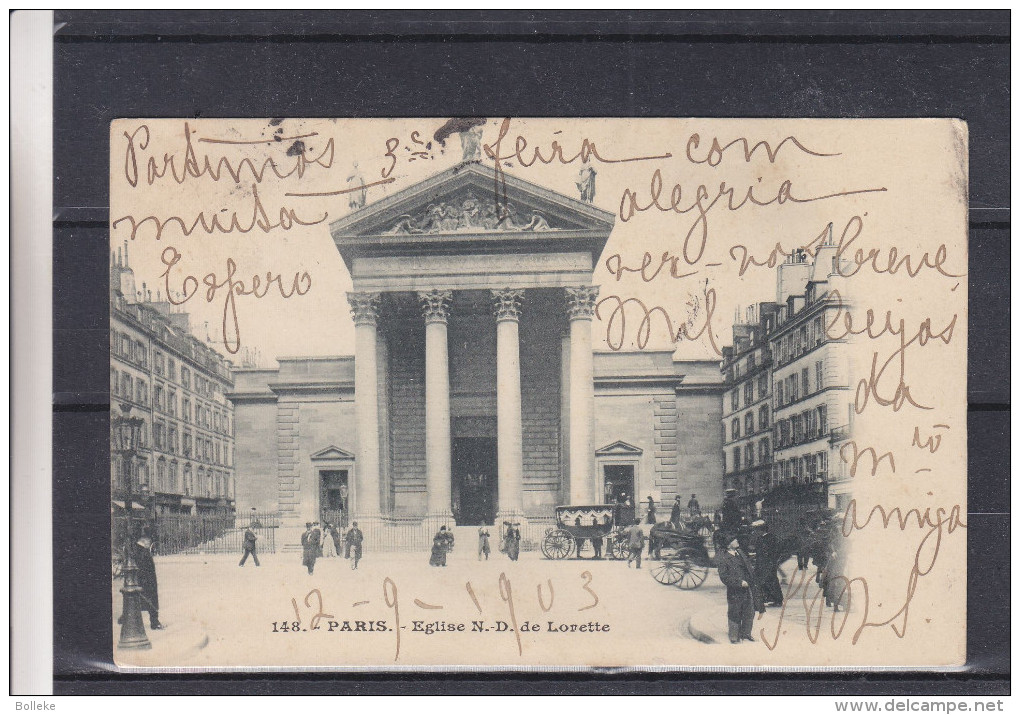 Partimos 3ª feira com
muita alegria
Espero ver-nos breve
Mil beijos
da
mto
amiga
12-9-1903
148. - PARIS. - Eglise N.-D. de Lorette
Bolleke
www.delcampe.net